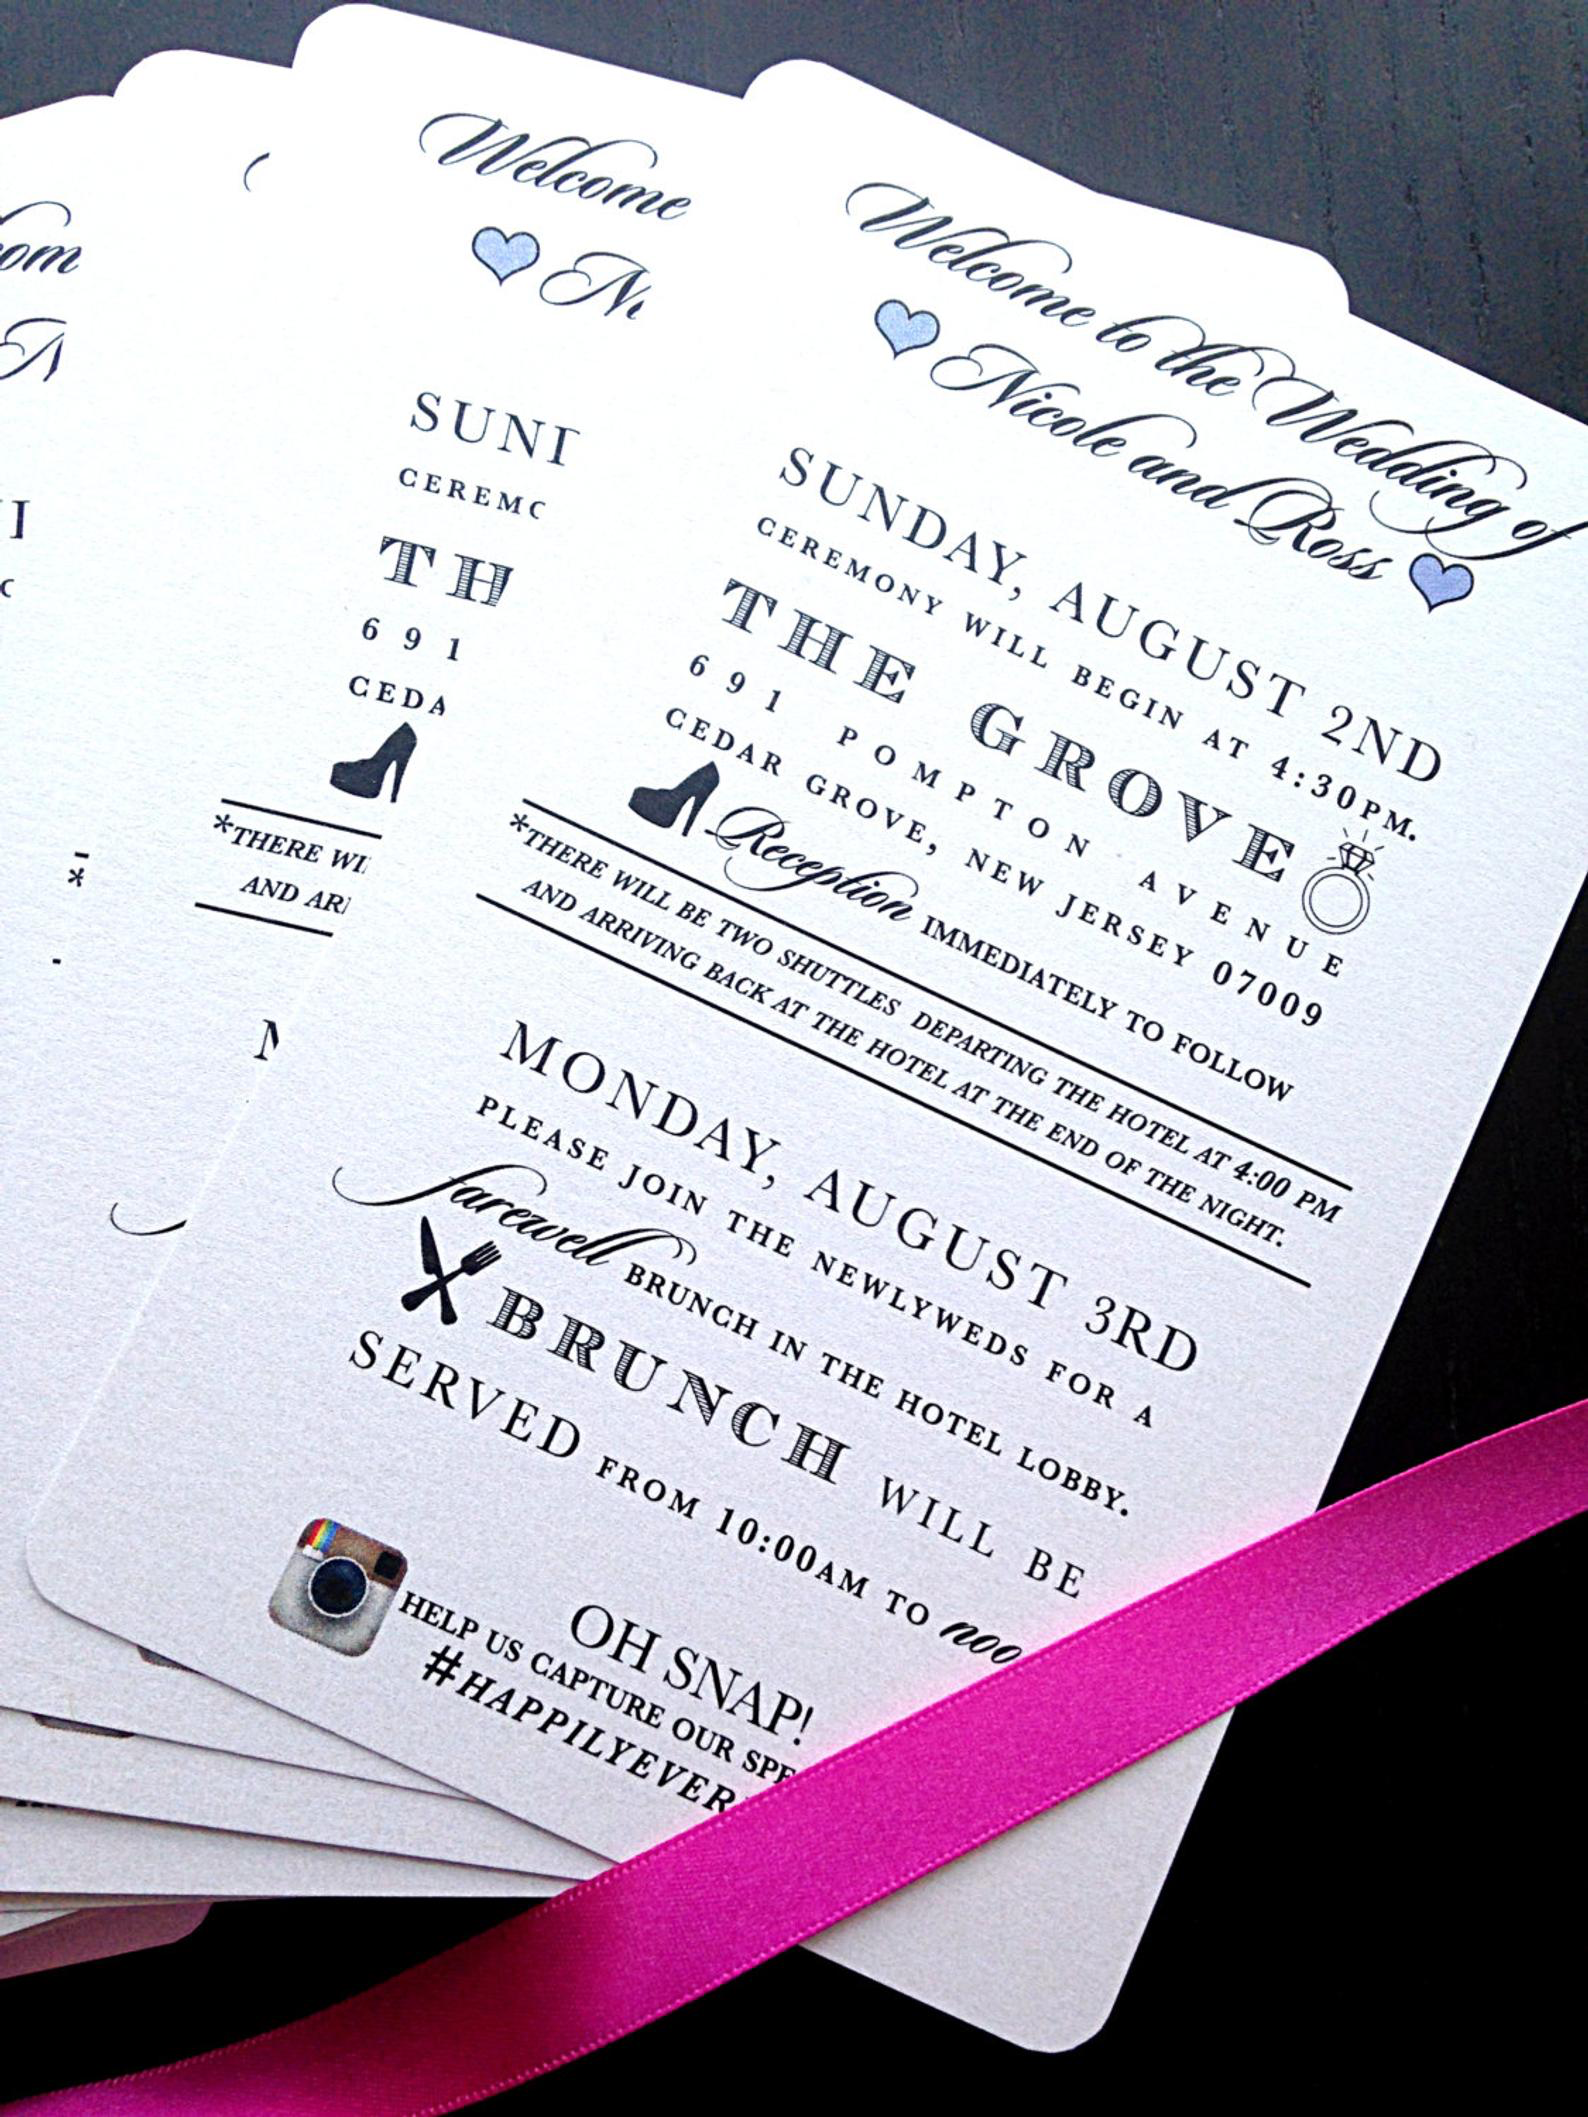 Welcome to the Wedding of
Nicole and Ross
SUNDAY, AUGUST 2ND
CEREMONY WILL BEGIN AT 4:30PM.
THE GROVE
691 POMPTON AVENUE
CEDAR GROVE, NEW JERSEY 07009
Reception IMMEDIATELY TO FOLLOW
*THERE WILL BE TWO SHUTTLES DEPARTING THE HOTEL AT 4:00 PM
AND ARRIVING BACK AT THE HOTEL AT THE END OF THE NIGHT.
MONDAY, AUGUST 3RD
PLEASE JOIN THE NEWLYWEDS FOR A
farewell BRUNCH IN THE HOTEL LOBBY.
BRUNCH WILL BE
SERVED FROM 10:00AM TO noo
OH SNAP!
HELP US CAPTURE OUR SPE
#HAPPILYEVER
Welcome
Ni
SUND
CEREMO
TH
691
CEDA
*THERE WI
AND AR
M
com
N